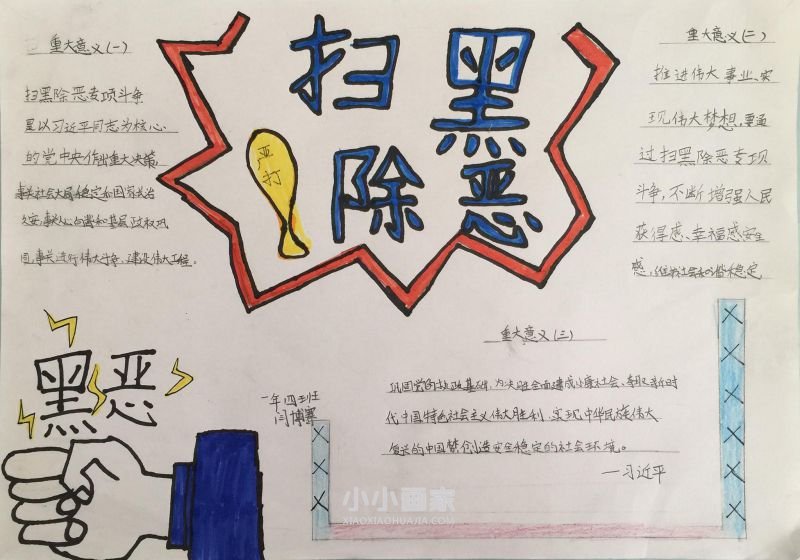 扫黑
除恶
严打
重大意义(一)
扫黑除恶专项斗争
是以习近平同志为核心
的党中央作出重大决策,
事关社会大局稳定和国家长治
久安,事关人心向背和基层政权巩
固,事关进行伟大斗争、建设伟大工程。
重大意义(二)
推进伟大事业、实
现伟大梦想,要通
过扫黑除恶专项
斗争,不断增强人民
获得感、幸福感安全
感,维护社会和谐稳定
重大意义(三)
巩固党的执政基础,为决胜全面建成小康社会、夺取新时
代中国特色社会主义伟大胜利、实现中华民族伟大
复兴的中国梦创造安全稳定的社会环境。
—习近平
黑恶
一年四班
闫博
小小画家
XIAOXIAOHUAJIA.COM